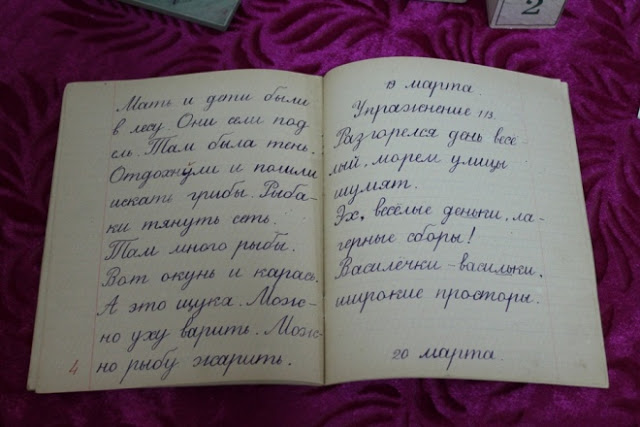 Мать и дети были
в лесу. Они сели под
ель. Там была тень.
Отдохнули и пошли
искать грибы. Рыба-
ки тянуть сеть.
Там много рыбы.
Вот окунь и карась.
А это щука. Мож-
но уху варить. Мож-
но рыбу жарить.
4
19 марта.
Упражнение 113.
Разгорелся день весё-
лый, морем улицы
шумят.
Эх, весёлые деньки, ла-
герные сборы!
Василёчки-васильки,
широкие просторы.
20 марта
2